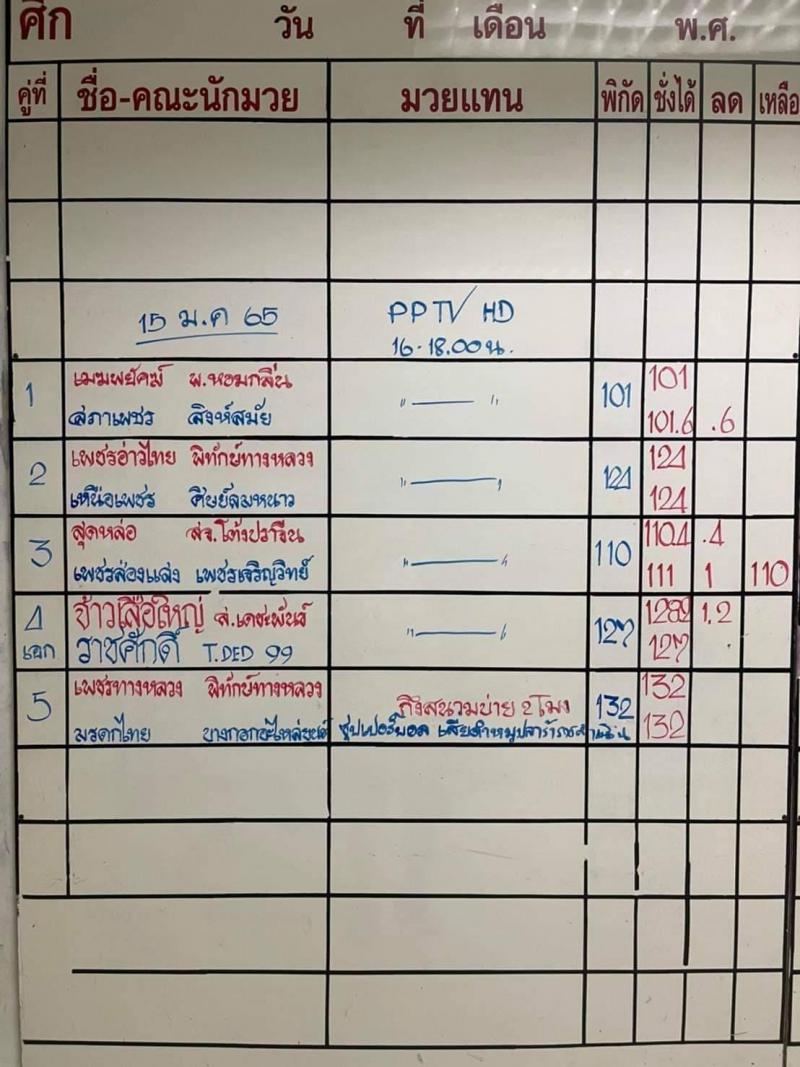 ศึก วัน ที่ เดือน พ.ศ.
คู่ที่ ชื่อ-คณะนักมวย มวยแทน พิกัด ชั่งได้ ลด เหลือ
15 ม.ค 65 PPTV HD
16-18.00 น.
1 เมฆพยัคฆ์ พ.หอมกลิ่น " — " 101 101
สภาเพชร สิงห์สมัย 101.6 .6
2 เพชรอ่าวไทย พิทักษ์ทางหลวง " — " 124 124
เหนือเพชร ศิษย์ลมหนาว 124
3 สุดหล่อ สจ.โต้งปราจีน " — " 110 110.4 .4
เพชรส่องแสง เพชรเจริญวิทย์ 111 1 110
4 จ้าวเสือใหญ่ ส.เดชะพันธ์ " — " 127 128.2 1.2
เอก ราชศักดิ์ T.DED 99 127
5 เพชรทางหลวง พิทักษ์ทางหลวง ถึงสนามบ่าย 2 โมง 132 132
มรดกไทย ซุปเปอร์บอล 132